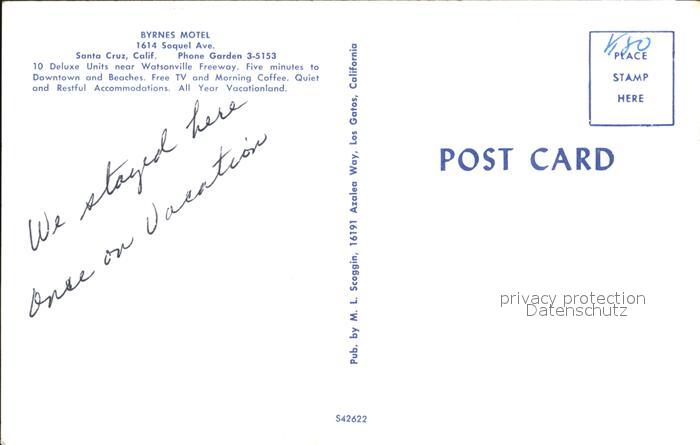 BYRNES MOTEL
1614 Soquel Ave.
Santa Cruz, Calif. Phone Garden 3-5153
10 Deluxe Units near Watsonville Freeway. Five minutes to
Downtown and Beaches. Free TV and Morning Coffee. Quiet
and Restful Accommodations. All Year Vacationland.
We stayed here
once on Vacation
Pub. by M. L. Scoggin, 16191 Azalea Way, Los Gatos, California
S42622
PLACE
STAMP
HERE
POST CARD
privacy protection
Datenschutz